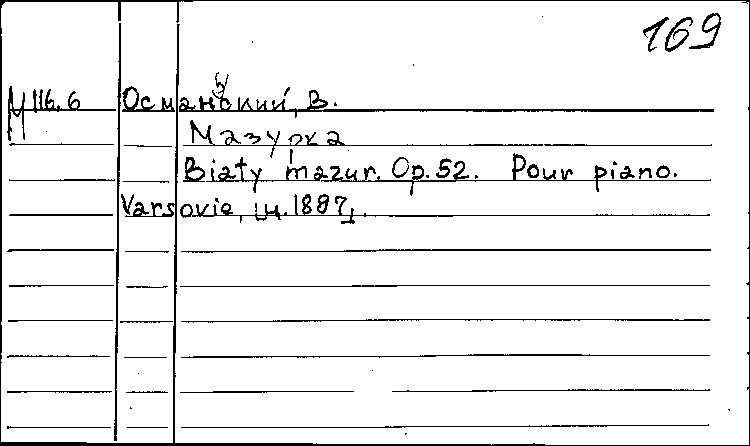 169
М 116.6 Османьский, В.
Мазурка
Biały mazur. Op. 52. Pour piano.
Varsovie, [ц. 1897].